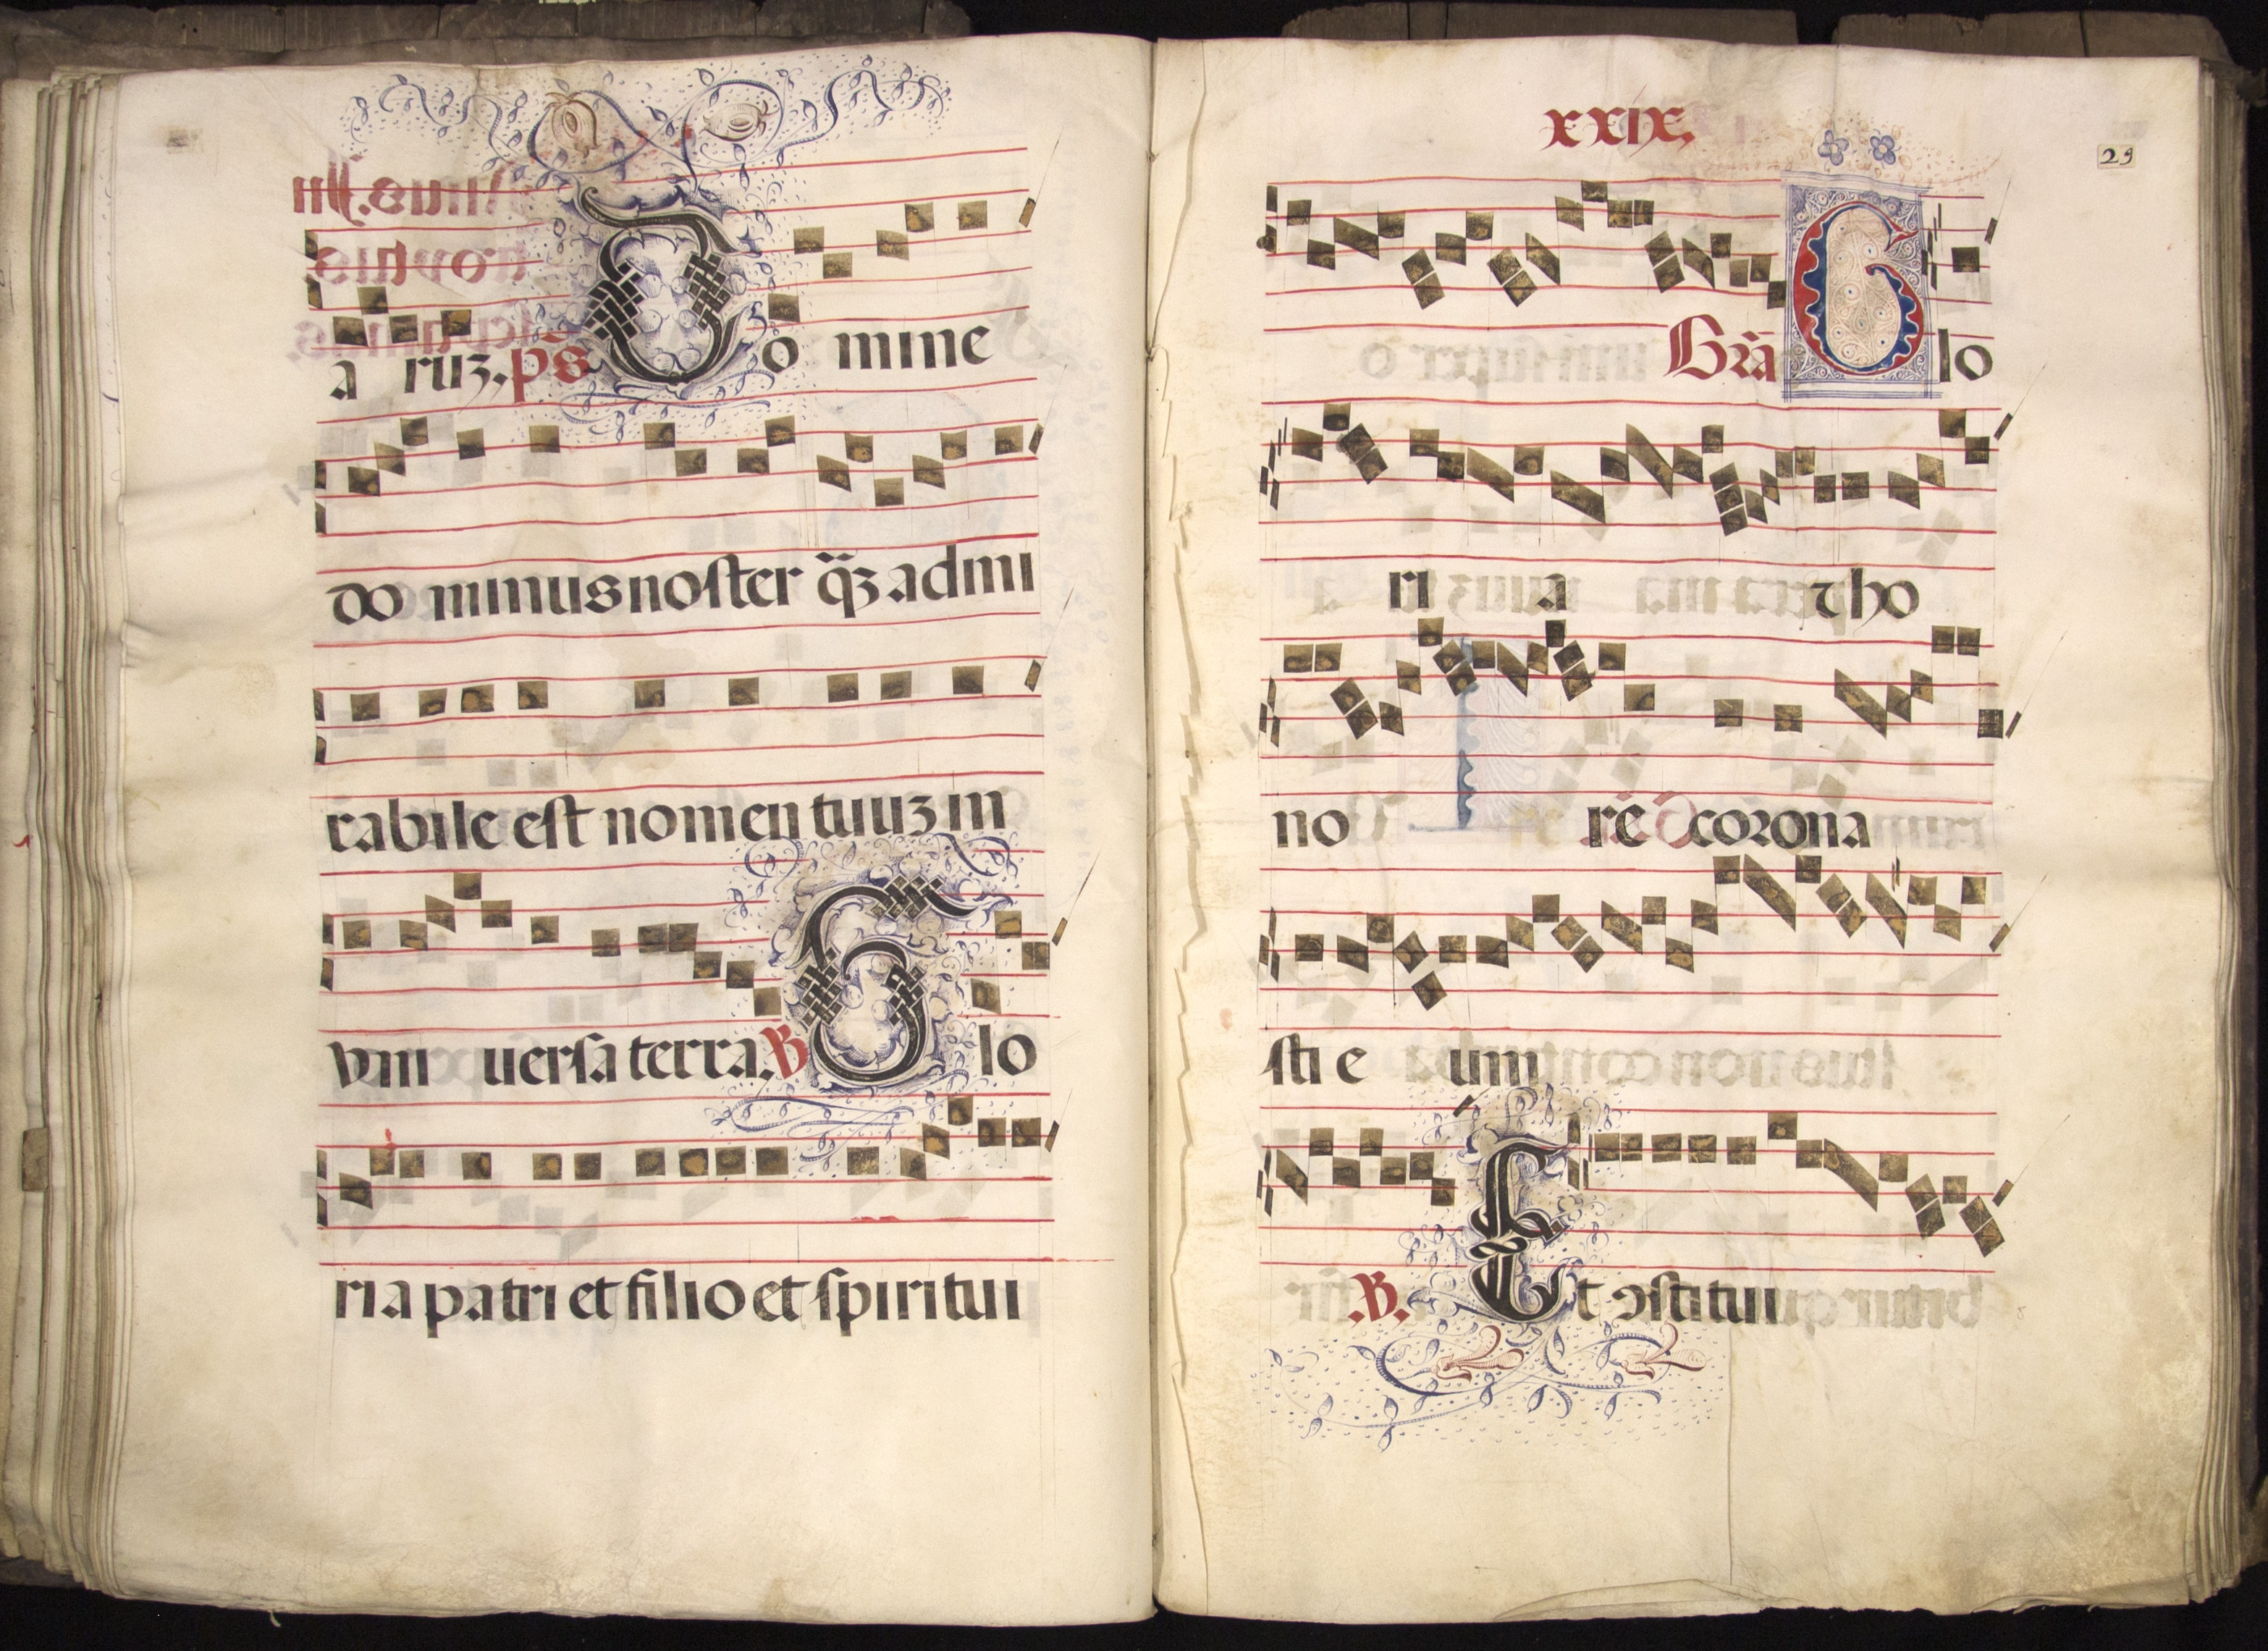 a ruz. ps Do mine
do minus noster q̄ȝ admi
rabile est nomen tuuz in
vni uersa terra. V Glo
ria patri et filio et spiritui
xxix.
29
Gra Glo
ri a et ho
no re corona
sti e um
.V. Et ɔstitui